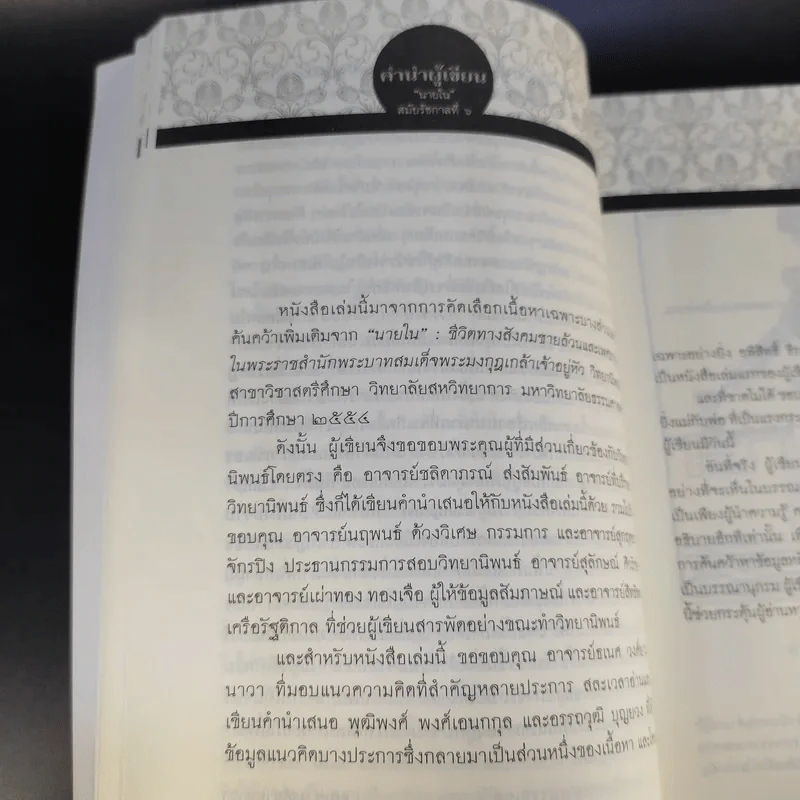 คำนำผู้เขียน
“นายใน”
สมัยรัชกาลที่ ๖
หนังสือเล่มนี้มาจากการคัดเลือกเนื้อหาเฉพาะบางส่วน
ค้นคว้าเพิ่มเติมจาก “นายใน” : ชีวิตทางสังคมชายล้วนและ
ในพระราชสำนักพระบาทสมเด็จพระมงกุฎเกล้าเจ้าอยู่หัว
สาขาวิชาสตรีศึกษา วิทยาลัยสหวิทยาการ มหาวิทยาลัย
ปีการศึกษา ๒๕๕๔
ดังนั้น ผู้เขียนจึงขอขอบพระคุณผู้ที่มีส่วนเกี่ยวข้องกับ
นิพนธ์โดยตรง คือ อาจารย์ชลิดาภรณ์ ส่งสัมพันธ์ อาจารย์ที่ปรึก
วิทยานิพนธ์ ซึ่งก็ได้เขียนคำนำเสนอให้กับหนังสือเล่มนี้ด้วย
ขอบคุณ อาจารย์นฤพนธ์ ด้วงวิเศษ กรรมการ และอาจารย์
จักรปิง ประธานกรรมการสอบวิทยานิพนธ์ อาจารย์สุลักษณ์
และอาจารย์เผ่าทอง ทองเจือ ผู้ให้ข้อมูลสัมภาษณ์ และอาจารย์
เครือรัฐติกาล ที่ช่วยผู้เขียนสารพัดอย่างขณะทำวิทยานิพนธ์
และสำหรับหนังสือเล่มนี้ ขอขอบคุณ อาจารย์ธเนศ วงศ์
นาวา ที่มอบแนวความคิดที่สำคัญหลายประการ สละเวลาอ่าน
เขียนคำนำเสนอ พุฒิพงศ์ พงศ์เอนกกุล และอรรถวุฒิ บุญยวง
ข้อมูลแนวคิดบางประการซึ่งกลายมาเป็นส่วนหนึ่งของเนื้อหา
เฉพาะอย่างยิ่ง อพิสิทธิ์
เป็นหนังสือเล่มแรกของผู้เขี
และที่ขาดไม่ได้
ยิ่งแม่กับพ่อ ที่เป็นแรง
ผู้เขียนมีกันนี้
อันที่จริง ผู้เขียน
อย่างที่จะเห็นในบรรณา
เป็นเพียงผู้นำความรู้
อธิบายอีกทีเท่านั้น
การค้นคว้าหาข้อมูล
เป็นบรรณานุกรม
นี้ช่วยกระตุ้นผู้อ่านหา